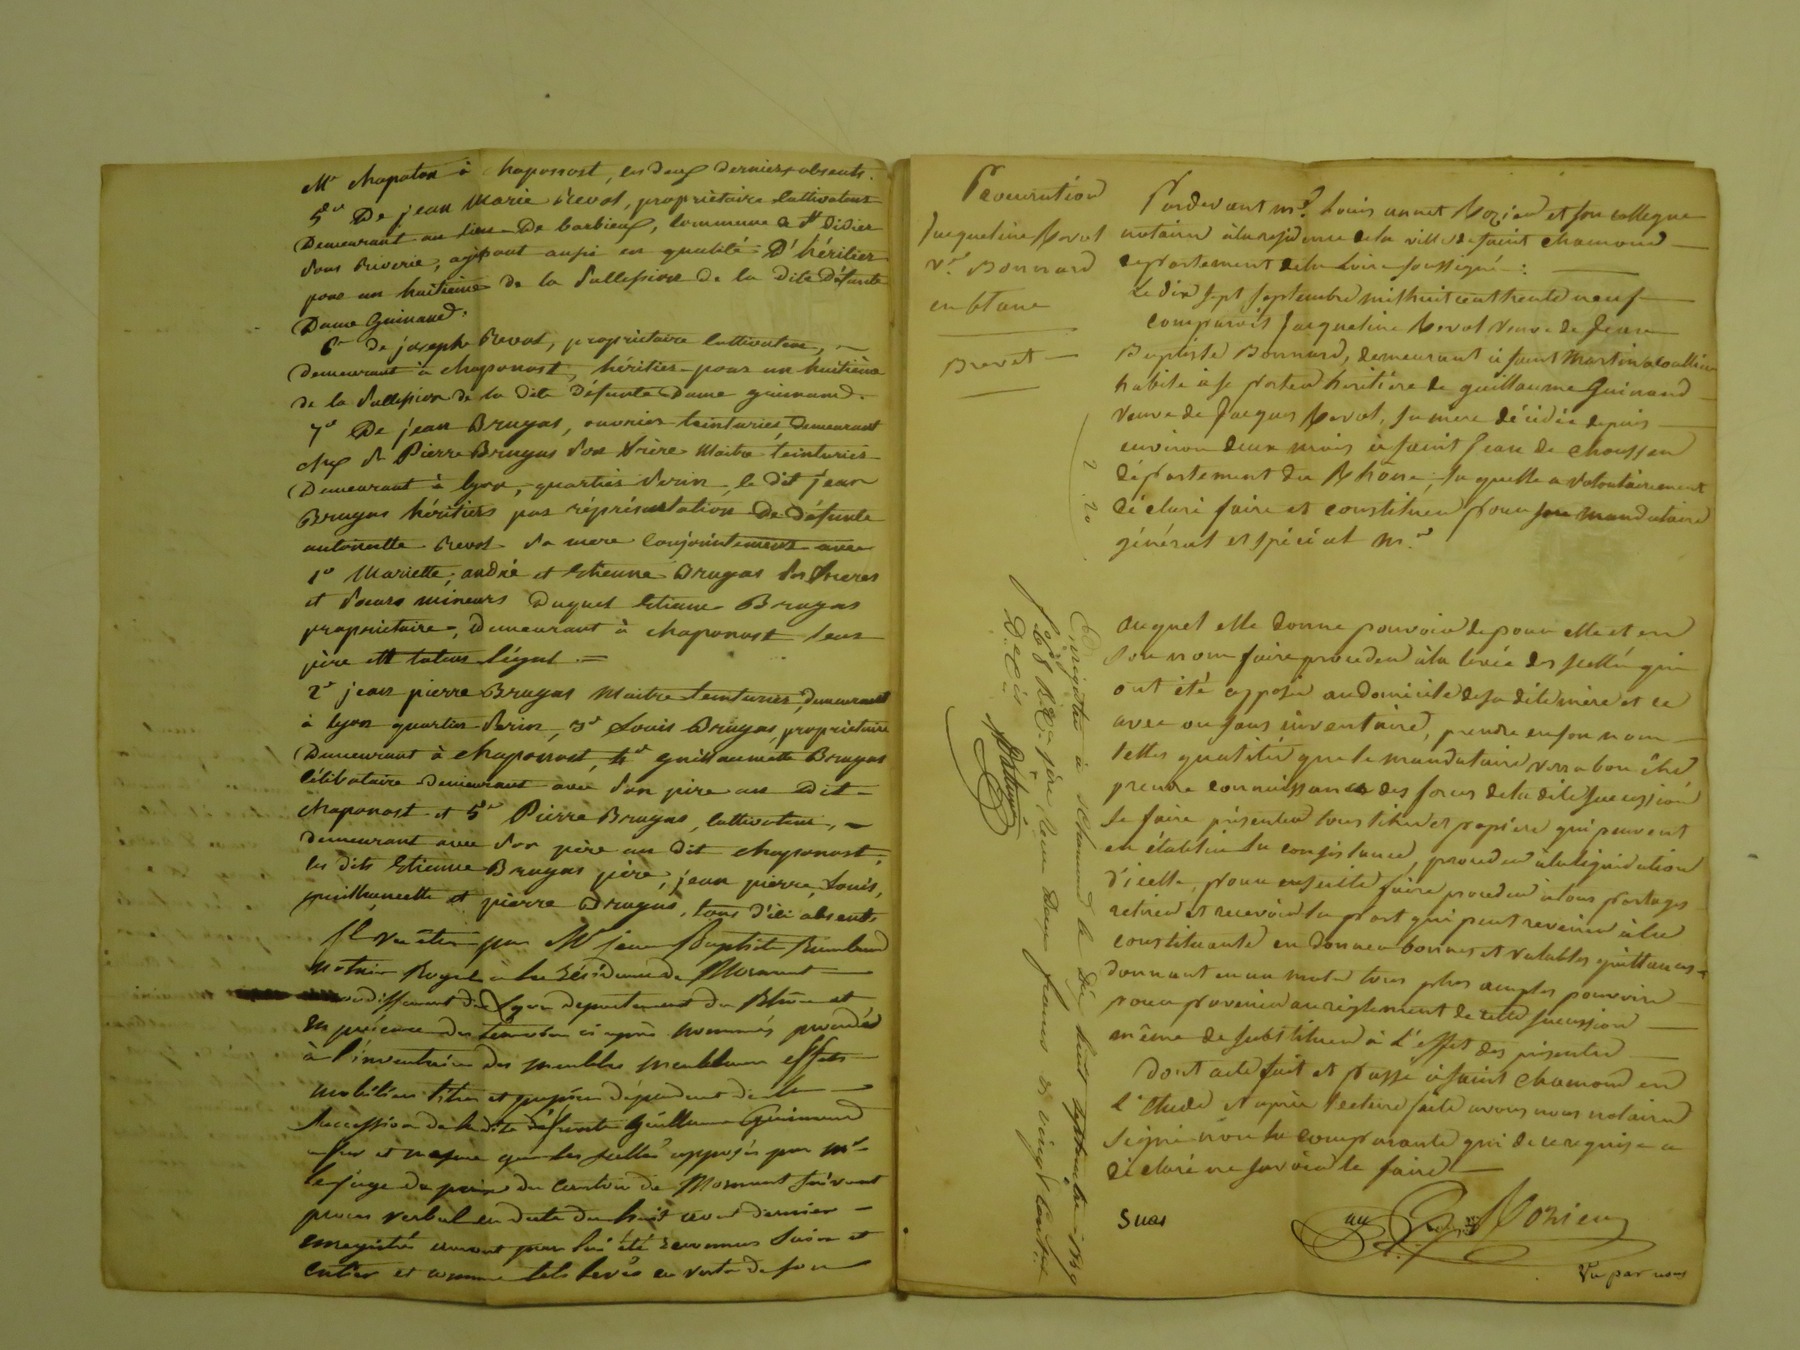 Mr chapoton à chaponost, les deux derniers absents.
5° De jean Marie Revol, propriétaire Cultivateur
Demeurant au lieu De barbieux, Commune de St Didier
Sous Riverie, agissant aussi en qualité D'héritier
pour un huitième de la Succession de la Dite Défunte
Dame Guinand.
6° de joseph Revol, propriétaire Cultivateur,
demeurant à chaponost, héritier pour un huitième
de la Succession de la dite Défunte Dame guinand.
7° De jean Bruyas, ouvrier teinturier, Demeurant
chez Sr Pierre Bruyas Son frère Maitre teinturier
Demeurant à lyon, quartier Serin, le dit jean
Bruyas héritier par réprésentation De Défunte
antoinette Revol Sa mere Conjointement avec
1° Mariette, andré et Etienne Bruyas Ses frères
et Sœurs mineurs Duquel Etienne Bruyas
propriétaire, Demeurant à chaponost leur
père et tuteur légal.
2° jean pierre Bruyas Maitre teinturier, demeurant
à lyon quartier Serin, 3° Louis Bruyas, propriétaire
Demeurant à chaponost, 4° guillaumette Bruyas
Célibataire demeurant avec Son père au Dit
chaponost et 5° Pierre Bruyas, Cultivateur,
demeurant avec Son père au dit chaponost,
les dits Etienne Bruyas père, jean pierre, Louis,
guillaumette et pierre Bruyas, tous d'ici absents
Il va être par Me jean Baptiste
notaire Royal à la Résidence de Mornant
arrondissement de Lyon departement du Rhône et
en présence des témoins ci après nommés procédé
à l'inventaire des meubles meublans effets
mobiliers titres et papiers dépendant de la
Succession de la dite défunte Guillaume Guinand
à fur et mesure que les scellés apposés par Mr
le juge de paix du Canton de Mornant suivant
procès verbal en date du huit aout dernier
enregistré auront par lui été reconnus Sains et
entiers et comme tels levés en vertu de son
Procuration
Jacqueline Revol
Ve Bonnard
en blanc
Brevet
2 . 20
Pardevant Me Louis annet Rozier et son collegue
notaires à la résidence de la ville de Saint chamond
departement de la Loire soussignés :
Le dix sept septembre mil huit cent trente neuf
Comparoit Jacqueline Revol veuve de Jean
Baptiste Bonnard, demeurant à Saint Martin acoallieu
habile à se porter héritière de guillaume Guinand
veuve de Jacques Revol, sa mere décédée depuis
environ deux mois à Saint Jean de choussan
département du Rhône, laquelle a volontairement
déclaré faire et constituer pour son mandataire
général et spécial Mr
Auquel elle donne pouvoir de pour elle et en
son nom faire procéder à la levée des scellés qui
ont été apposés au domicile de sa dite mère et ce
avec ou sans inventaire, prendre en son nom
telles qualités que le mandataire verra bon être
prendre connaissance des forces de la dite succession
se faire présenter tous titres et papiers qui peuvent
en établir la consistance, procéder à la liquidation
d'icelle, pour ensuite faire procéder à tous partages
retirer et recevoir la part qui peut revenir à la
constituante en donner bonnes et valables quittances
donnant en un mot les plus amples pouvoirs
pour parvenir au règlement de cette succession
même de substituer à l'effet des présentes
Dont acte fait et passé à Saint Chamond en
l'étude et après lecture faite avons nous notaires
signé non la comparante qui de ce requise a
déclaré ne savoir le faire
Suas
Rozier
Vu par nous
Enregistré à St Chamond le dix huit septembre 1839
fo 68 Reçu deux francs et vingt centimes